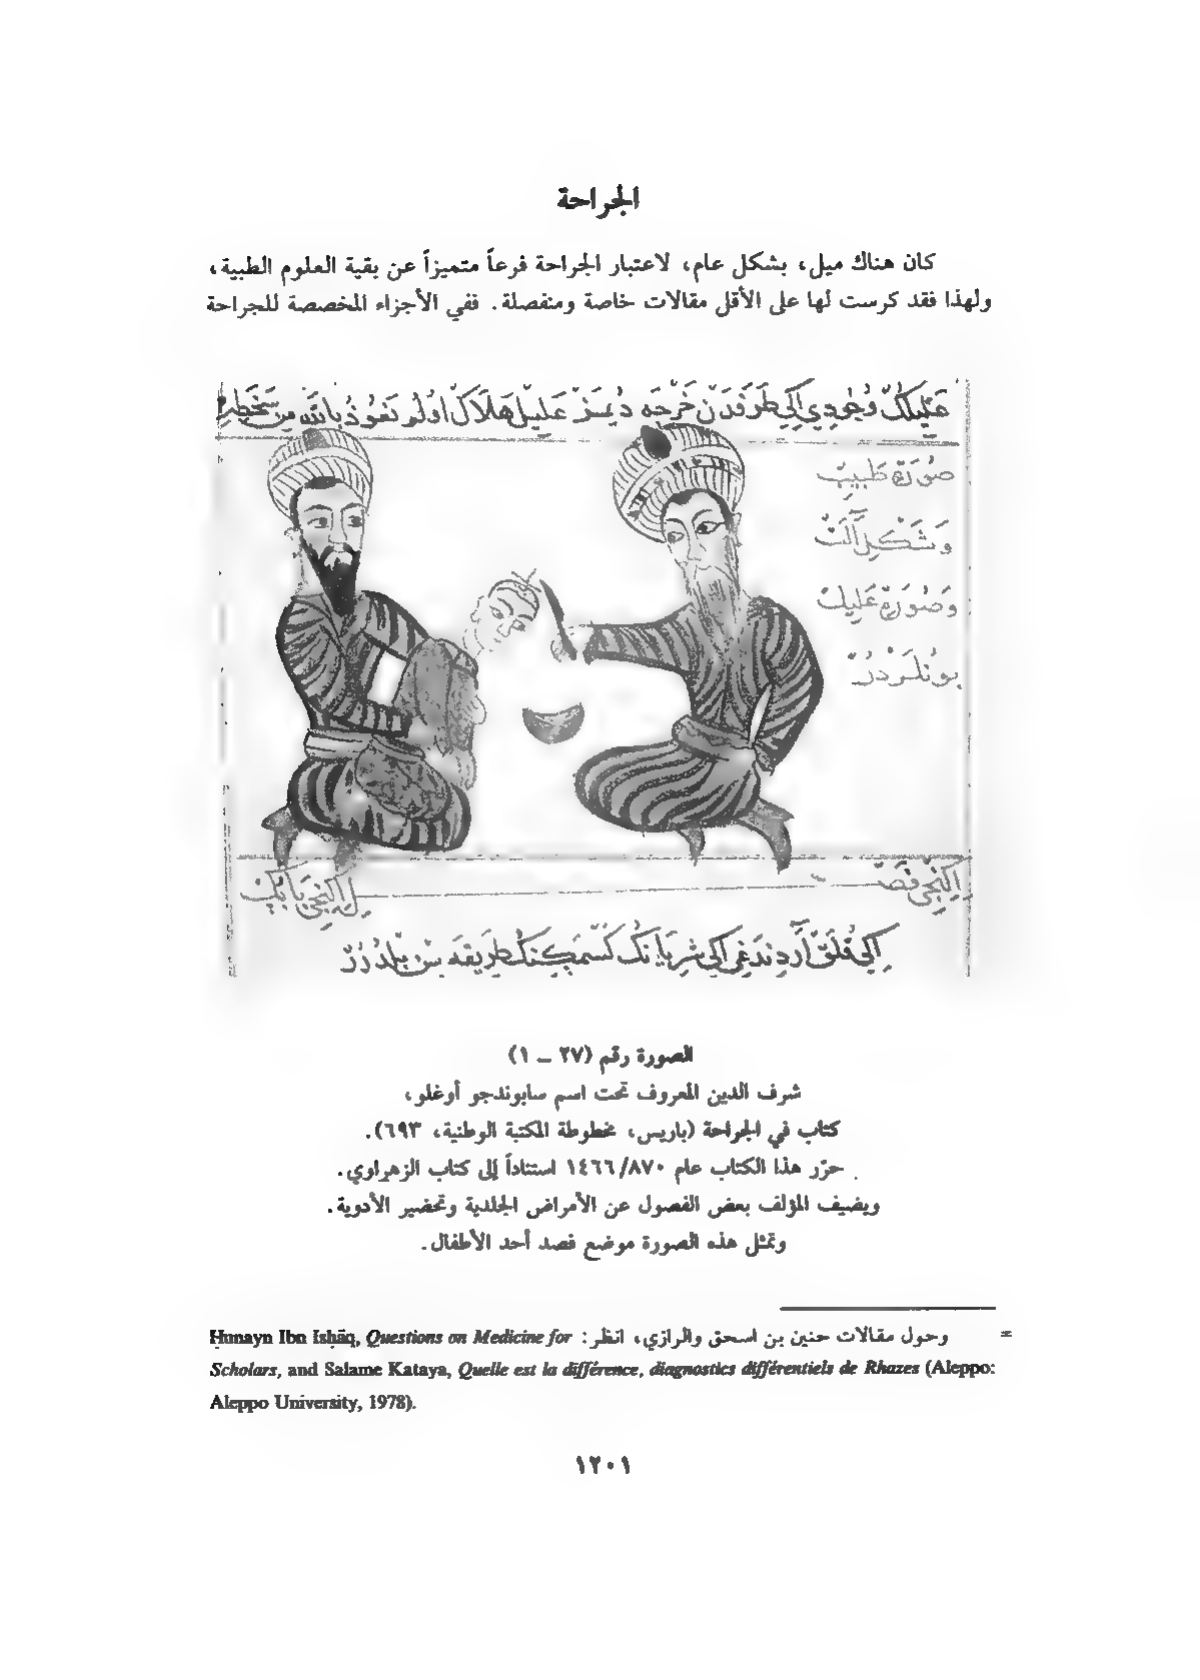 الجراحة
كان هناك ميل، بشكل عام، لاعتبار الجراحة فرعاً متميزاً عن بقية العلوم الطبية،
ولهذا فقد كرست لها على الأقل مقالات خاصة ومنفصلة. ففي الأجزاء المخصصة للجراحة
صُورَةِ طَبيبْ
وَشَكْلِ آلَتْ
وَصُورَةِ عَليلْ
بونُلَرْدُرْ
الصورة رقم (٢٧ ــ ١)
شرف الدين المعروف تحت اسم سابوندجو أوغلو،
كتاب في الجراحة (باريس، مخطوطة المكتبة الوطنية، ٦٩٣).
حرّر هذا الكتاب عام ٨٧٠/ ١٤٦٦ استناداً إلى كتاب الزهراوي.
ويضيف المؤلف بعض الفصول عن الأمراض الجلدية وتحضير الأدوية.
وتمثل هذه الصورة موضع فصد أحد الأطفال.
= وحول مقالات حنين بن اسحق والرازي، انظر: Ḥunayn Ibn Isḥāq, Questions on Medicine for
Scholars, and Salame Kataya, Quelle est la différence, diagnostics différentiels de Rhazes (Aleppo:
Aleppo University, 1978).
١٢٠١